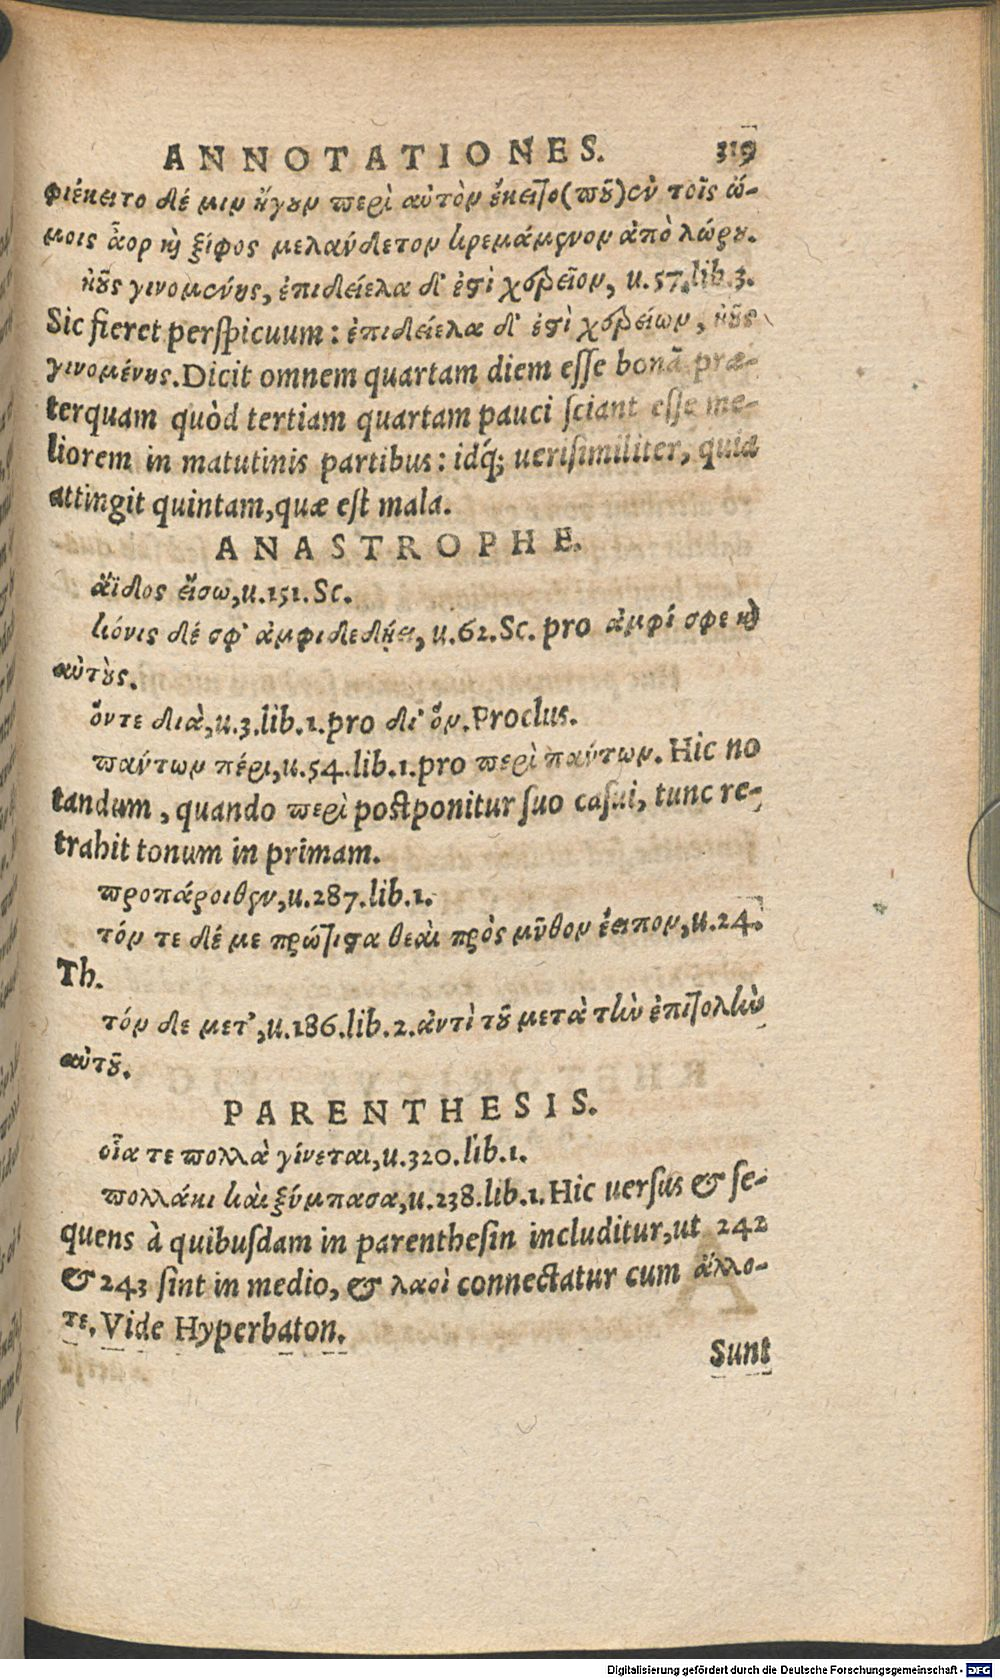 ANNOTATIONES. 319
φιέκειτο δέ μιν ἤγουν περὶ αὐτὸν ἔκειτο (ποῦ) ἐν τοῖς ὤ-
μοις ἆορ καὶ ξίφος μελανδετον κρεμάμενον ἀπὸ λώρου.
ἠοῦς γινομένης, ἐπιδείελα δ' ἐστὶ χέρειον, u. 57. lib. 3.
Sic fieret perſpicuum: ἐπιδείελα δ' ἐστὶ χερείων, ἠοῦς
γινομένης. Dicit omnem quartam diem eſſe bonā præ-
terquam quòd tertiam quartam pauci ſciant eſſe me-
liorem in matutinis partibus: idq́; ueriſimiliter, quia
attingit quintam, quæ eſt mala.
ANASTROPHE.
ἄϊδος εἴσω, u. 151. Sc.
κόνις δέ σφ' ἀμφιδεδήει, u. 62. Sc. pro ἀμφί σφε καὶ
αὐτοὺς.
ὅντε διὰ, u. 3. lib. 1. pro δι' ὅν. Proclus.
πάντων πέρι, u. 54. lib. 1. pro περὶ πάντων. Hic no
tandum, quando περὶ poſtponitur ſuo caſui, tunc re-
trahit tonum in primam.
προπάροιθεν, u. 287. lib. 1.
τόν τε δέ με πρώτιστα θεαὶ πρὸς μῦθον ἔειπον, u. 24.
Th.
τόν δε μετ', u. 186. lib. 2. ἀντὶ τοῦ μετὰ τὴν ἐπιστολὴν
αὐτοῦ.
PARENTHESIS.
οἷα τε πολλὰ γίνεται, u. 320. lib. 1.
πολλάκι καὶ ξύμπασα, u. 238. lib. 1. Hic uerſus & ſe-
quens à quibuſdam in parentheſin includitur, ut 242
& 243 ſint in medio, & λαοὶ connectatur cum ἄλλο-
τε. Vide Hyperbaton.
Sunt
Digitalisierung gefördert durch die Deutsche Forschungsgemeinschaft - DFG